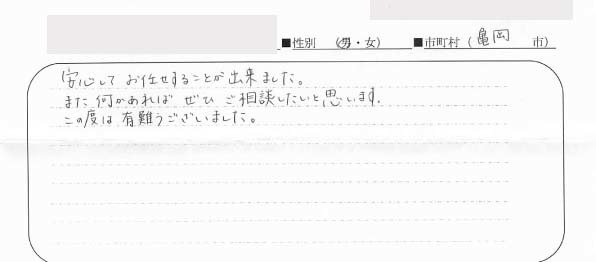 ■性別 (男・女) ■市町村 (亀岡 市)
安心して お任せすることが出来ました。
また何かあれば ぜひ ご相談したいと思います。
この度は 有難うございました。